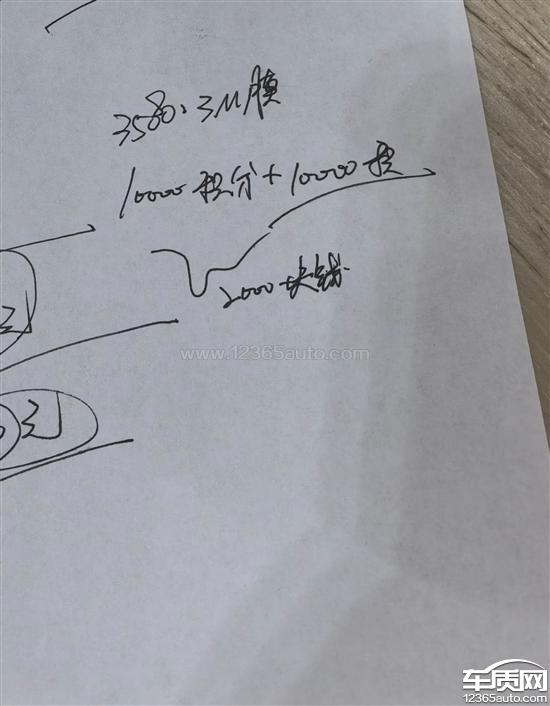 3580. 3M膜
10000积分+10000积
2000块钱
元
元
www.12365auto.com
车质网
12365auto.com